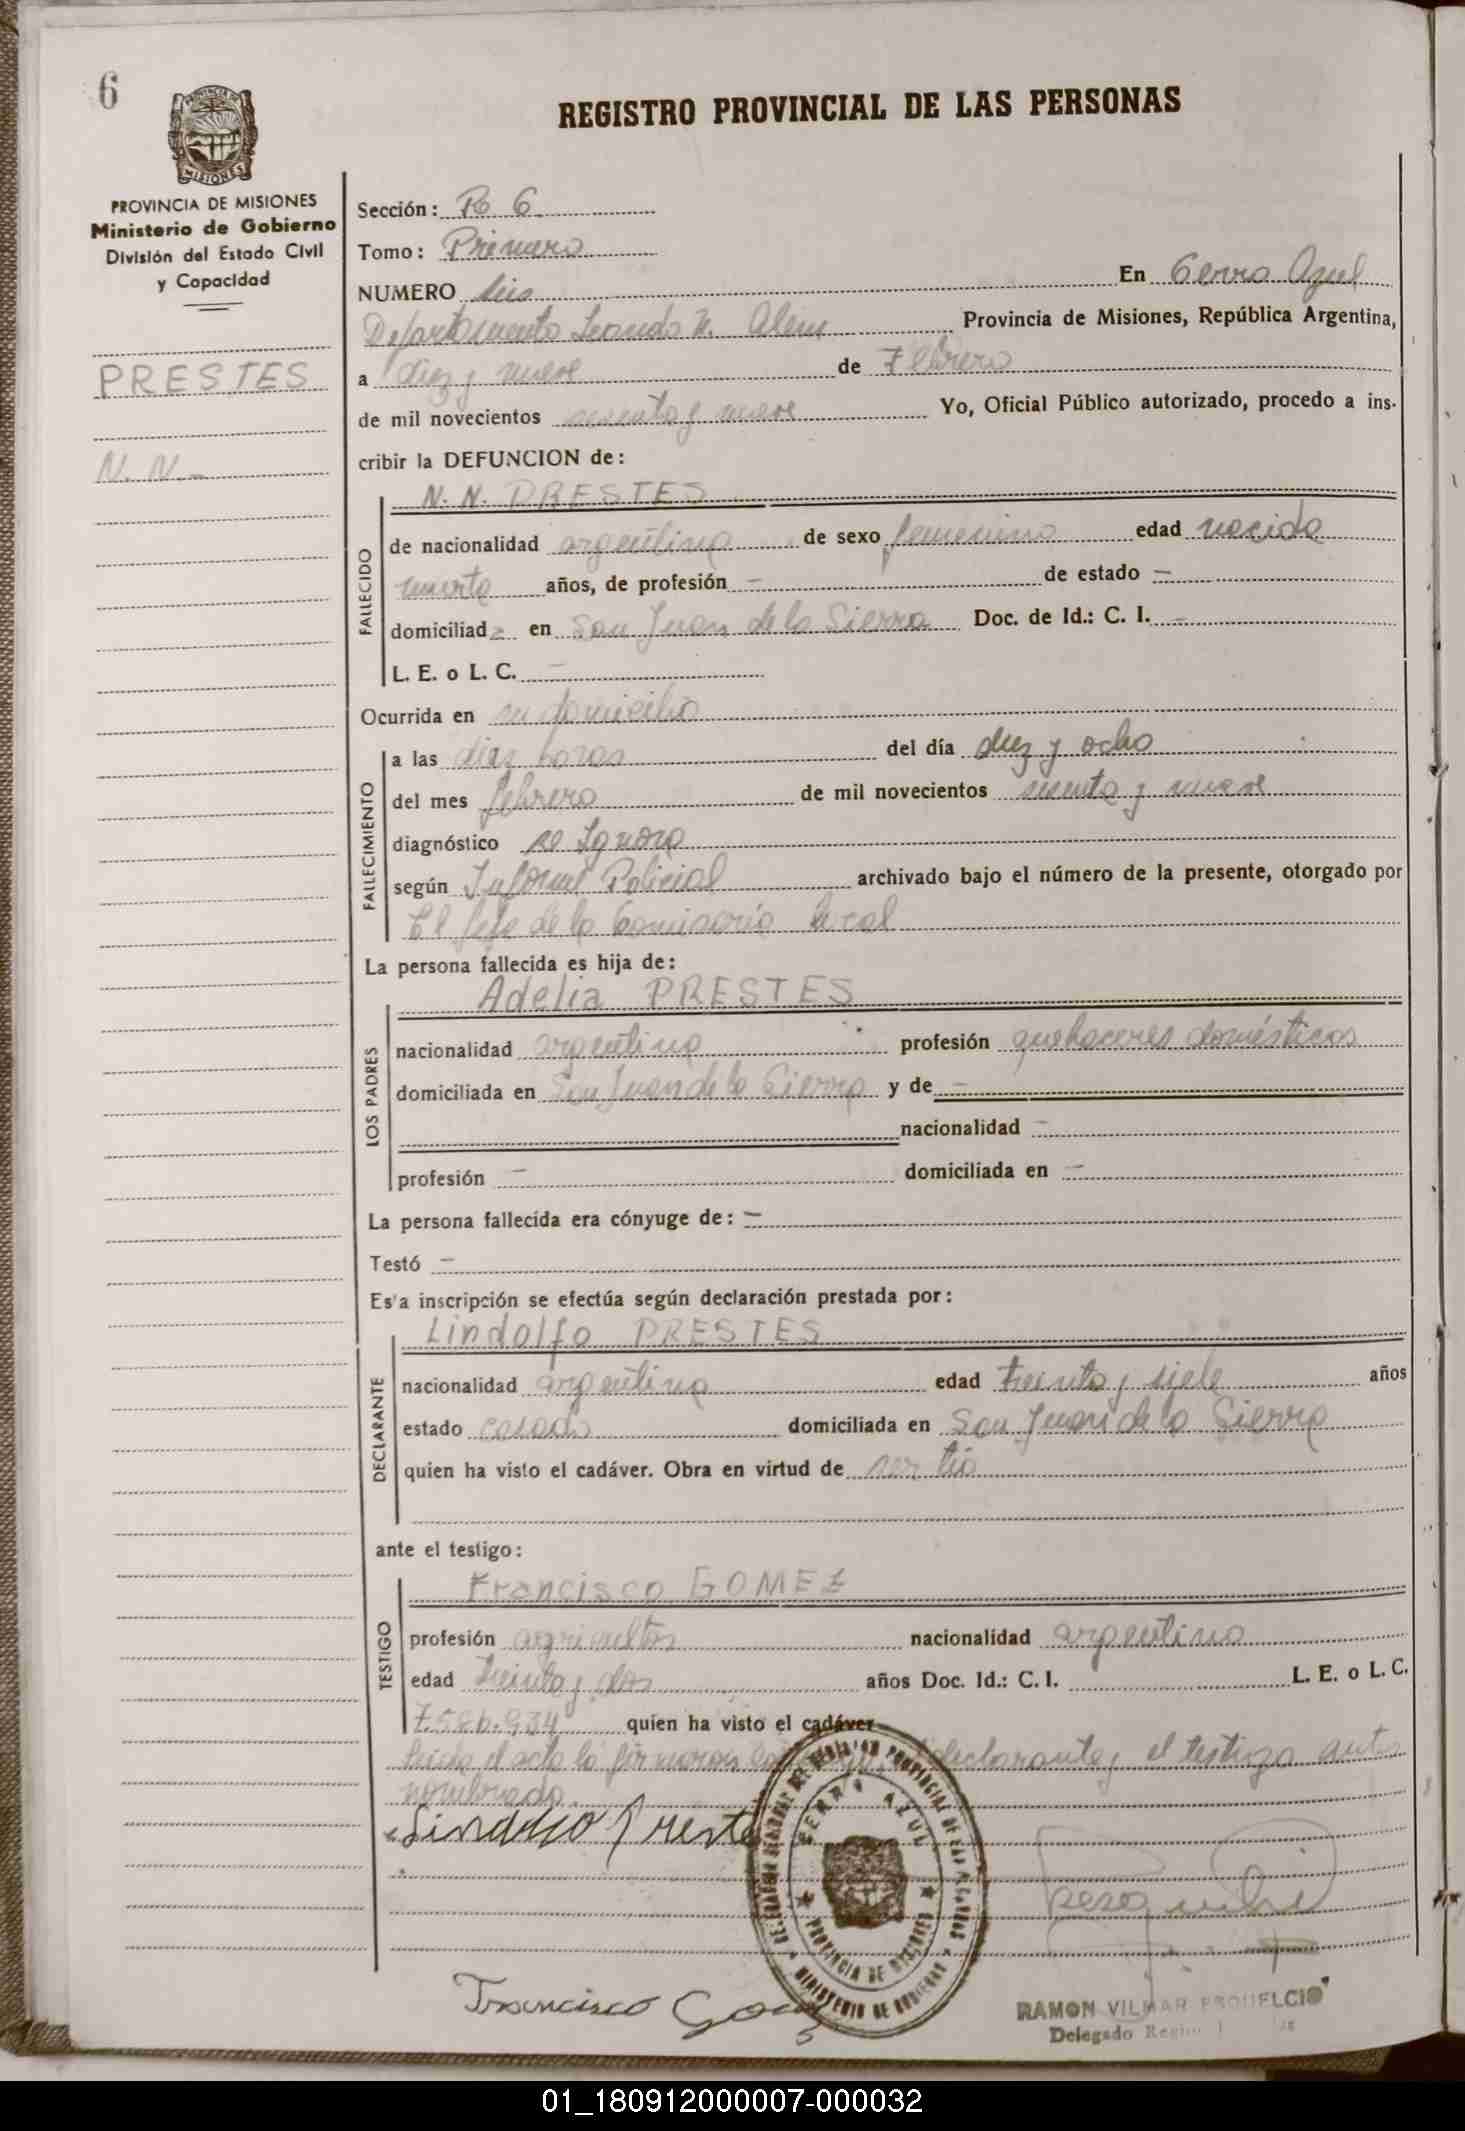 6
REGISTRO PROVINCIAL DE LAS PERSONAS
PROVINCIA DE
MISIONES
PROVINCIA DE MISIONES
Ministerio de Gobierno
División del Estado Civil
y Capacidad
PRESTES
N. N.-
Sección: Ro 6
Tomo: Primero
NUMERO Seis En Cerro Azul
Departamento Leandro N. Alem Provincia de Misiones, República Argentina,
a diez y nueve de Febrero
de mil novecientos sesenta y nueve Yo, Oficial Público autorizado, procedo a ins-
cribir la DEFUNCION de:
N. N. PRESTES
FALLECIDO
de nacionalidad argentina de sexo femenino edad nacida
muerta años, de profesión - de estado -
domiciliada en San Juan de la Sierra Doc. de Id.: C. I. -
L. E. o L. C. -
Ocurrida en su domicilio
FALLECIMIENTO
a las diez horas del día diez y ocho
del mes febrero de mil novecientos sesenta y nueve
diagnóstico se Ignora
según Informe Policial archivado bajo el número de la presente, otorgado por
El Jefe de la Comisaría Local
La persona fallecida es hija de:
Adelia PRESTES
LOS PADRES
nacionalidad argentina profesión quehaceres domésticos
domiciliada en San Juan de la Sierra y de -
nacionalidad -
profesión - domiciliada en -
La persona fallecida era cónyuge de: -
Testó -
Es'a inscripción se efectúa según declaración prestada por:
Lindolfo PRESTES
DECLARANTE
nacionalidad argentina edad treinta y siete años
estado casado domiciliada en San Juan de la Sierra
quien ha visto el cadáver. Obra en virtud de ser tio
ante el testigo:
Francisco GOMEZ
TESTIGO
profesión agricultor nacionalidad argentino
edad treinta y dos años Doc. Id.: C. I. L. E. o L. C.
7.586.934 quien ha visto el cadáver
Leida el acta la firmaron declarante y el testigo antes
nombrado.
Lindolfo Prestes
CERRO AZUL
PROVINCIA DE MISIONES
MINISTERIO DE GOBIERNO
Francisco Gomez
RAMON VILMAR
Delegado
01_180912000007-000032